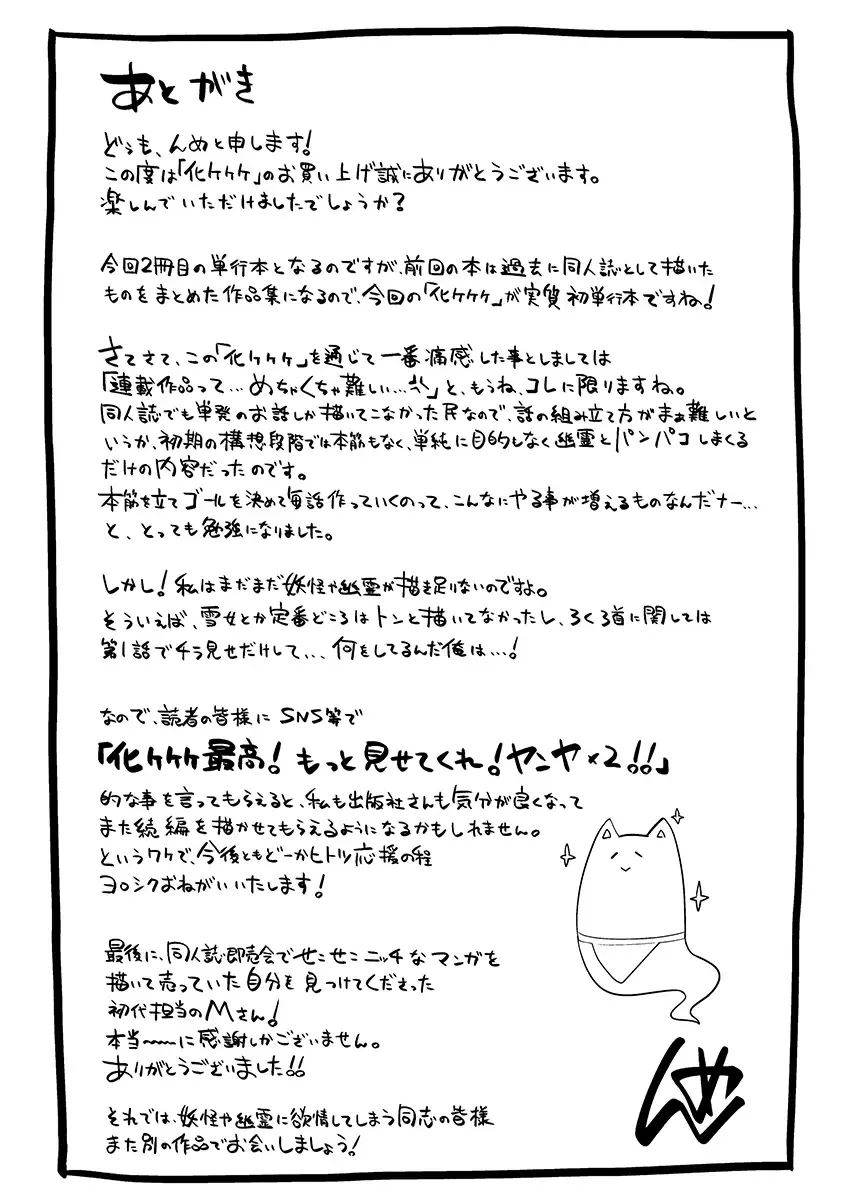 あとがき
どぅも、んめと申します!
この度は「化ケケケ」のお買い上げ誠にありがとうございます。
楽しんでいただけましたでしょうか?
今回2冊目の単行本となるのですが、前回の本は過去に同人誌として描いた
ものをまとめた作品集になるので、今回の「化ケケケ」が実質初単行本ですね!
さてさて、この「化ケケケ」を通じて一番痛感した事としましては
「連載作品って…めちゃくちゃ難しい…」と、もうね、コレに限りますね。
同人誌でも単発のお話しか描いてこなかった民なので、話の組み立て方がまぁ難しいと
いうか、初期の構想段階では本筋もなく、単純に目的もなく幽霊とパンパコしまくる
だけの内容だったのです。
本筋を立てゴールを決めて毎話作っていくのって、こんなにやる事が増えるものなんだナー…
と、とっても勉強になりました。
しかし!私はまだまだ妖怪や幽霊が描き足りないのですよ。
そういえば、雪女とか定番どころはトンと描いてなかったし、ろくろ首に関しては
第1話でチラ見せだけして...何をしてるんだ俺は…!
なので、読者の皆様に SNS等で
「化ケケケ最高!もっと見せてくれ!ヤンヤ×2!!」
的な事を言ってもらえると、私も出版社さんも気分が良くなって
また続編を描かせてもらえるようになるかもしれません。
というワケで、今後ともどーかヒトツ応援の程
ヨロシクおねがいいたします!
最後に、同人誌即売会でせこせこニッチなマンガを
描いて売っていた自分を見つけてくださった
初代担当のMさん!
本当〜〜に感謝しかございません。
ありがとうございました!!
それでは、妖怪や幽霊に欲情してしまう同志の皆様
また別の作品でお会いしましょう!
んめ